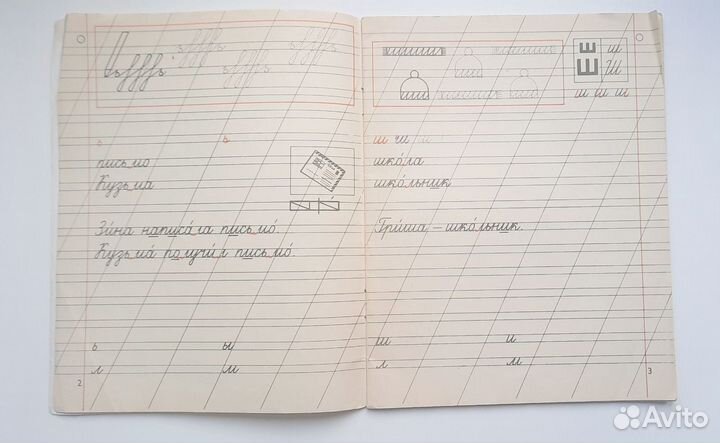 ь ь
письмо
Кузьма
Зи́на написа́ла письмо́.
Кузьма́ получи́л письмо́.
ь ы
л м
2
Ш ш
Ш
ш ш ш
ш ш ш
шко́ла
шко́льник
Гри́ша — шко́льник.
ш и
л м
3
Avito